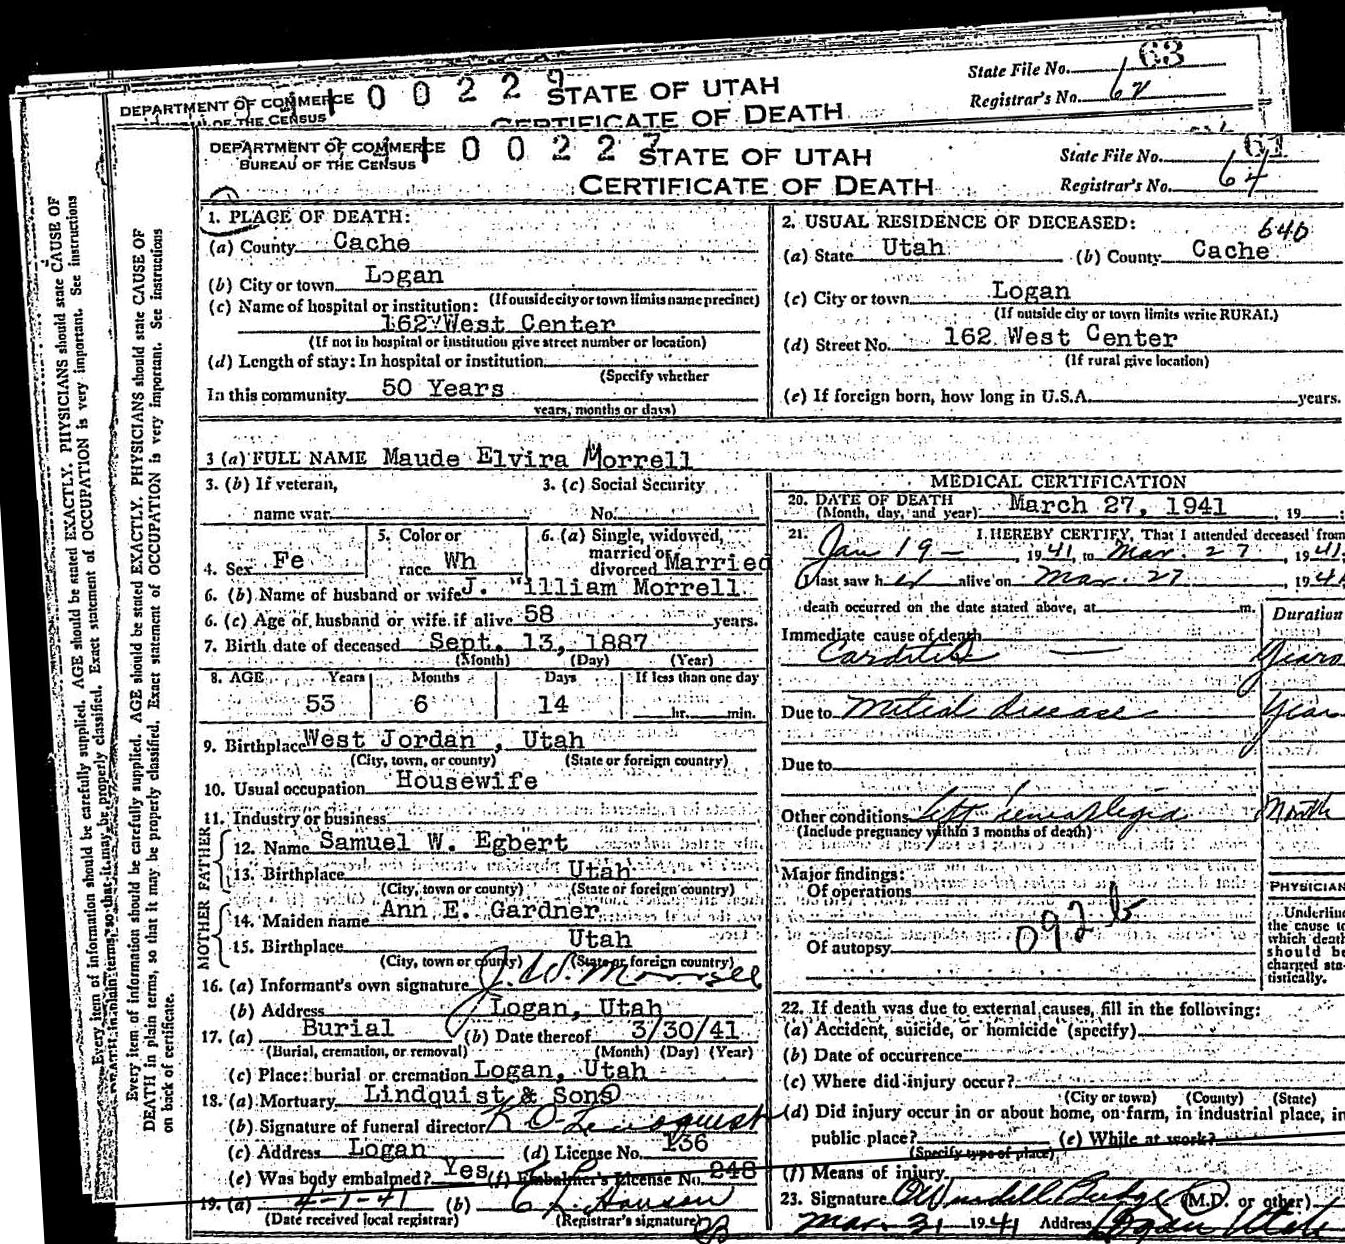 State File No. 63
DEPARTMENT OF COMMERCE 1 0 0 2 2 9 STATE OF UTAH
Registrar's No. 62
OF THE CENSUS CERTIFICATE OF DEATH
DEPARTMENT OF COMMERCE 1 0 0 2 2 7 STATE OF UTAH State File No. 61
BUREAU OF THE CENSUS
CERTIFICATE OF DEATH Registrar's No. 64
Every item of information should be carefully supplied. AGE should be stated EXACTLY. PHYSICIANS should state CAUSE OF
DEATH in plain terms, so that it may be properly classified. Exact statement of OCCUPATION is very important. See instructions
Every item of information should be carefully supplied. AGE should be stated EXACTLY. PHYSICIANS should state CAUSE OF
DEATH in plain terms, so that it may be properly classified. Exact statement of OCCUPATION is very important. See instructions
on back of certificate.
1. PLACE OF DEATH:
(a) County Cache
(b) City or town Logan
(If outside city or town limits name precinct)
(c) Name of hospital or institution:
162 West Center
(If not in hospital or institution give street number or location)
(d) Length of stay: In hospital or institution
(Specify whether
In this community 50 Years
years, months or days)
2. USUAL RESIDENCE OF DECEASED: 640
(a) State Utah (b) County Cache
(c) City or town Logan
(If outside city or town limits write RURAL)
(d) Street No. 162 West Center
(If rural give location)
(e) If foreign born, how long in U.S.A. years.
3 (a) FULL NAME Maude Elvira Morrell
3. (b) If veteran, 3. (c) Social Security
name war No.
4. Sex Fe
5. Color or
race Wh
6. (a) Single, widowed,
married or
divorced Married
6. (b) Name of husband or wife J. William Morrell
6. (c) Age of husband or wife if alive 58 years.
7. Birth date of deceased Sept. 13, 1887
(Month) (Day) (Year)
8. AGE Years Months Days If less than one day
53 6 14 hr. min.
9. Birthplace West Jordan, Utah
(City, town, or county) (State or foreign country)
10. Usual occupation Housewife
11. Industry or business
FATHER
12. Name Samuel W. Egbert
13. Birthplace Utah
(City, town or county) (State or foreign country)
MOTHER
14. Maiden name Ann E. Gardner
15. Birthplace Utah
(City, town or county) (State or foreign country)
16. (a) Informant's own signature J. W. Morrell
(b) Address Logan, Utah
17. (a) Burial (b) Date thereof 3/30/41
(Burial, cremation, or removal) (Month) (Day) (Year)
(c) Place: burial or cremation Logan, Utah
18. (a) Mortuary Lindquist & Sons
(b) Signature of funeral director K O Lindquist
(c) Address Logan (d) License No. 136
(e) Was body embalmed? Yes (f) Embalmer's License No. 248
19. (a) 4-1-41 (b) Hansen
(Date received local registrar) (Registrar's signature)
MEDICAL CERTIFICATION
20. DATE OF DEATH
(Month, day, and year) March 27, 1941, 19 :
21. I HEREBY CERTIFY, That I attended deceased from
Jan 19 - , 1941, to Mar. 27, 1941.
I last saw her alive on Mar. 27, 1941
death occurred on the date stated above, at m.
Duration
Immediate cause of death
Carditis Years
Due to Mitral disease Years
Due to
Other conditions left hemiplegia Month
(Include pregnancy within 3 months of death)
Major findings:
Of operations
092 b
Of autopsy
PHYSICIAN
Underline
the cause to
which death
should be
charged sta-
tistically.
22. If death was due to external causes, fill in the following:
(a) Accident, suicide, or homicide (specify)
(b) Date of occurrence
(c) Where did injury occur?
(City or town) (County) (State)
(d) Did injury occur in or about home, on farm, in industrial place, in
public place? (e) While at work?
(Specify type of place)
(f) Means of injury
23. Signature O. Wendell Budge (M.D. or other)
Mar. 31 1941 Address Logan Utah